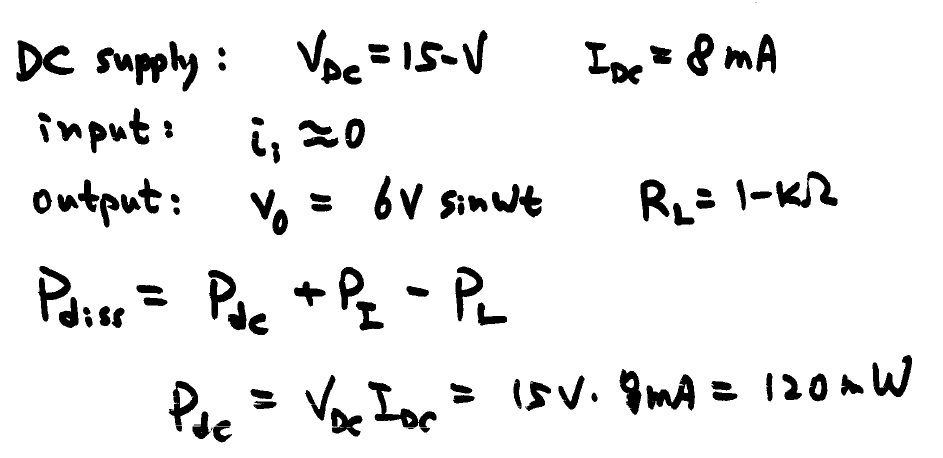 DC supply: V_DC = 15-V I_DC = 8 mA
input: i_i ≈ 0
output: v_o = 6V sinωt R_L = 1-kΩ
P_diss = P_dc + P_I - P_L
P_dc = V_DC I_DC = 15V · 8mA = 120mW